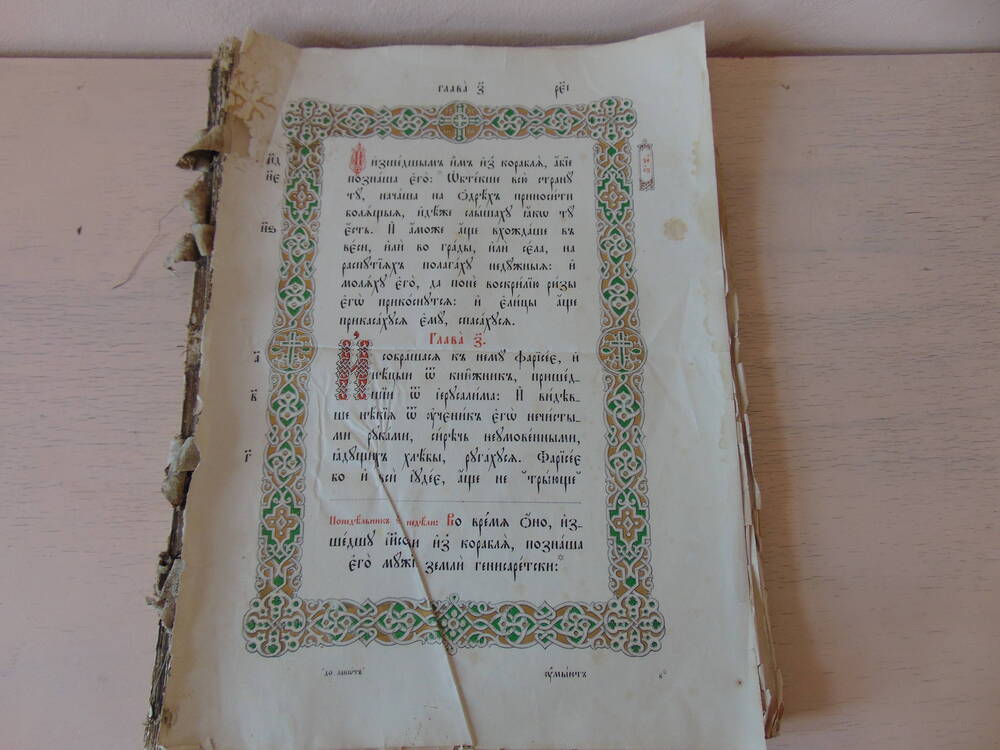 глава̀ з҃.
рє҃і
н҃д
н҃є
н҃ѕ
И҆ и҆зше́дшымъ и҆̀мъ и҆з̾ корабла̀, а҆́бїе
позна́ша є҆го̀: Ѡ҆бте́кше всю̀ странꙋ̀
тꙋ̀, нача́ша на ѻ҆дрѣ́хъ приноси́ти
болѧ́щыѧ, и҆дѣ́же слы́шахꙋ ꙗ҆́кѡ тꙋ̀
є҆́сть. И҆ а҆́може а҆́ще вхожда́ше въ
вє́си, и҆лѝ во гра́ды, и҆лѝ се́ла, на
распꙋ́тїихъ полага́хꙋ недꙋ́жныѧ: и҆
молѧ́хꙋ є҆го̀, да понѐ воскри́лїю ри́зы
є҆гѡ̀ прико́снꙋтсѧ: и҆ є҆ли́цы а҆́ще
прикаса́хꙋсѧ є҆мꙋ̀, спаса́хꙋсѧ.
Глава̀ з҃.
а҃
И҆ собра́шасѧ къ немꙋ̀ фарїсе́є, и҆
нѣ́цыи ѿ кни́жникъ, прише́д-
в҃
шїи ѿ і҆ерꙋсали́ма: И҆ ви́дѣв-
ше нѣ́кїѧ ѿ ᲂу҆чени́къ є҆гѡ̀ нечи́сты-
ми рꙋка́ми, си́рѣчь неꙋмове́нными,
г҃
ꙗ҆дꙋ́щихъ хлѣ́бы, рꙋга́хꙋсѧ. Фарїсе́є
бо и҆ всѝ і҆ꙋде́є, а҆́ще не трыю́ще
Понедѣ́льникъ недѣ́ли: Во вре́мѧ ѻ҆́но, и҆з-
ше́дшꙋ і҆и҃сови и҆з̾ корабла̀, позна́ша
є҆го̀ мꙋ́жїе землѝ генисаре́тски: